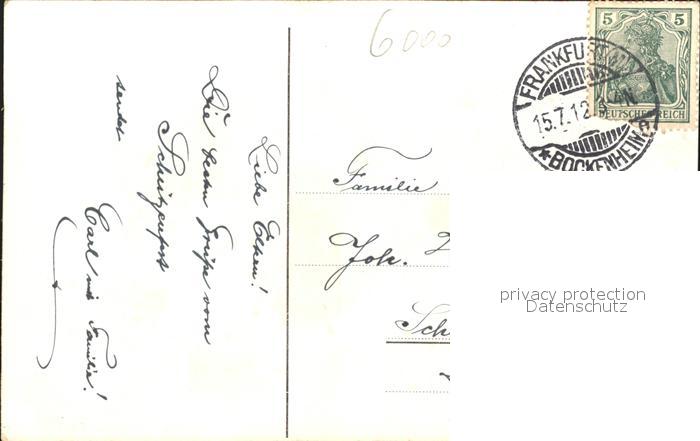 6000
5 5
DEUTSCHES REICH
FRANKFU
15.7.12
*BOCKENHEIM
Liebe Eltern!
Die besten Grüße vom
Schützenfest
sendet
Carl mit Familie!
Familie
Joh.
Sch
privacy protection
Datenschutz